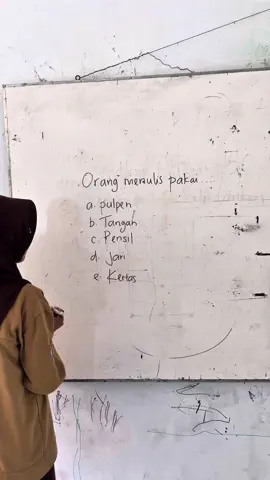 Orang menulis pakai...
a. pulpen
b. Tangan
c. Pensil
d. jari
e. Kertas